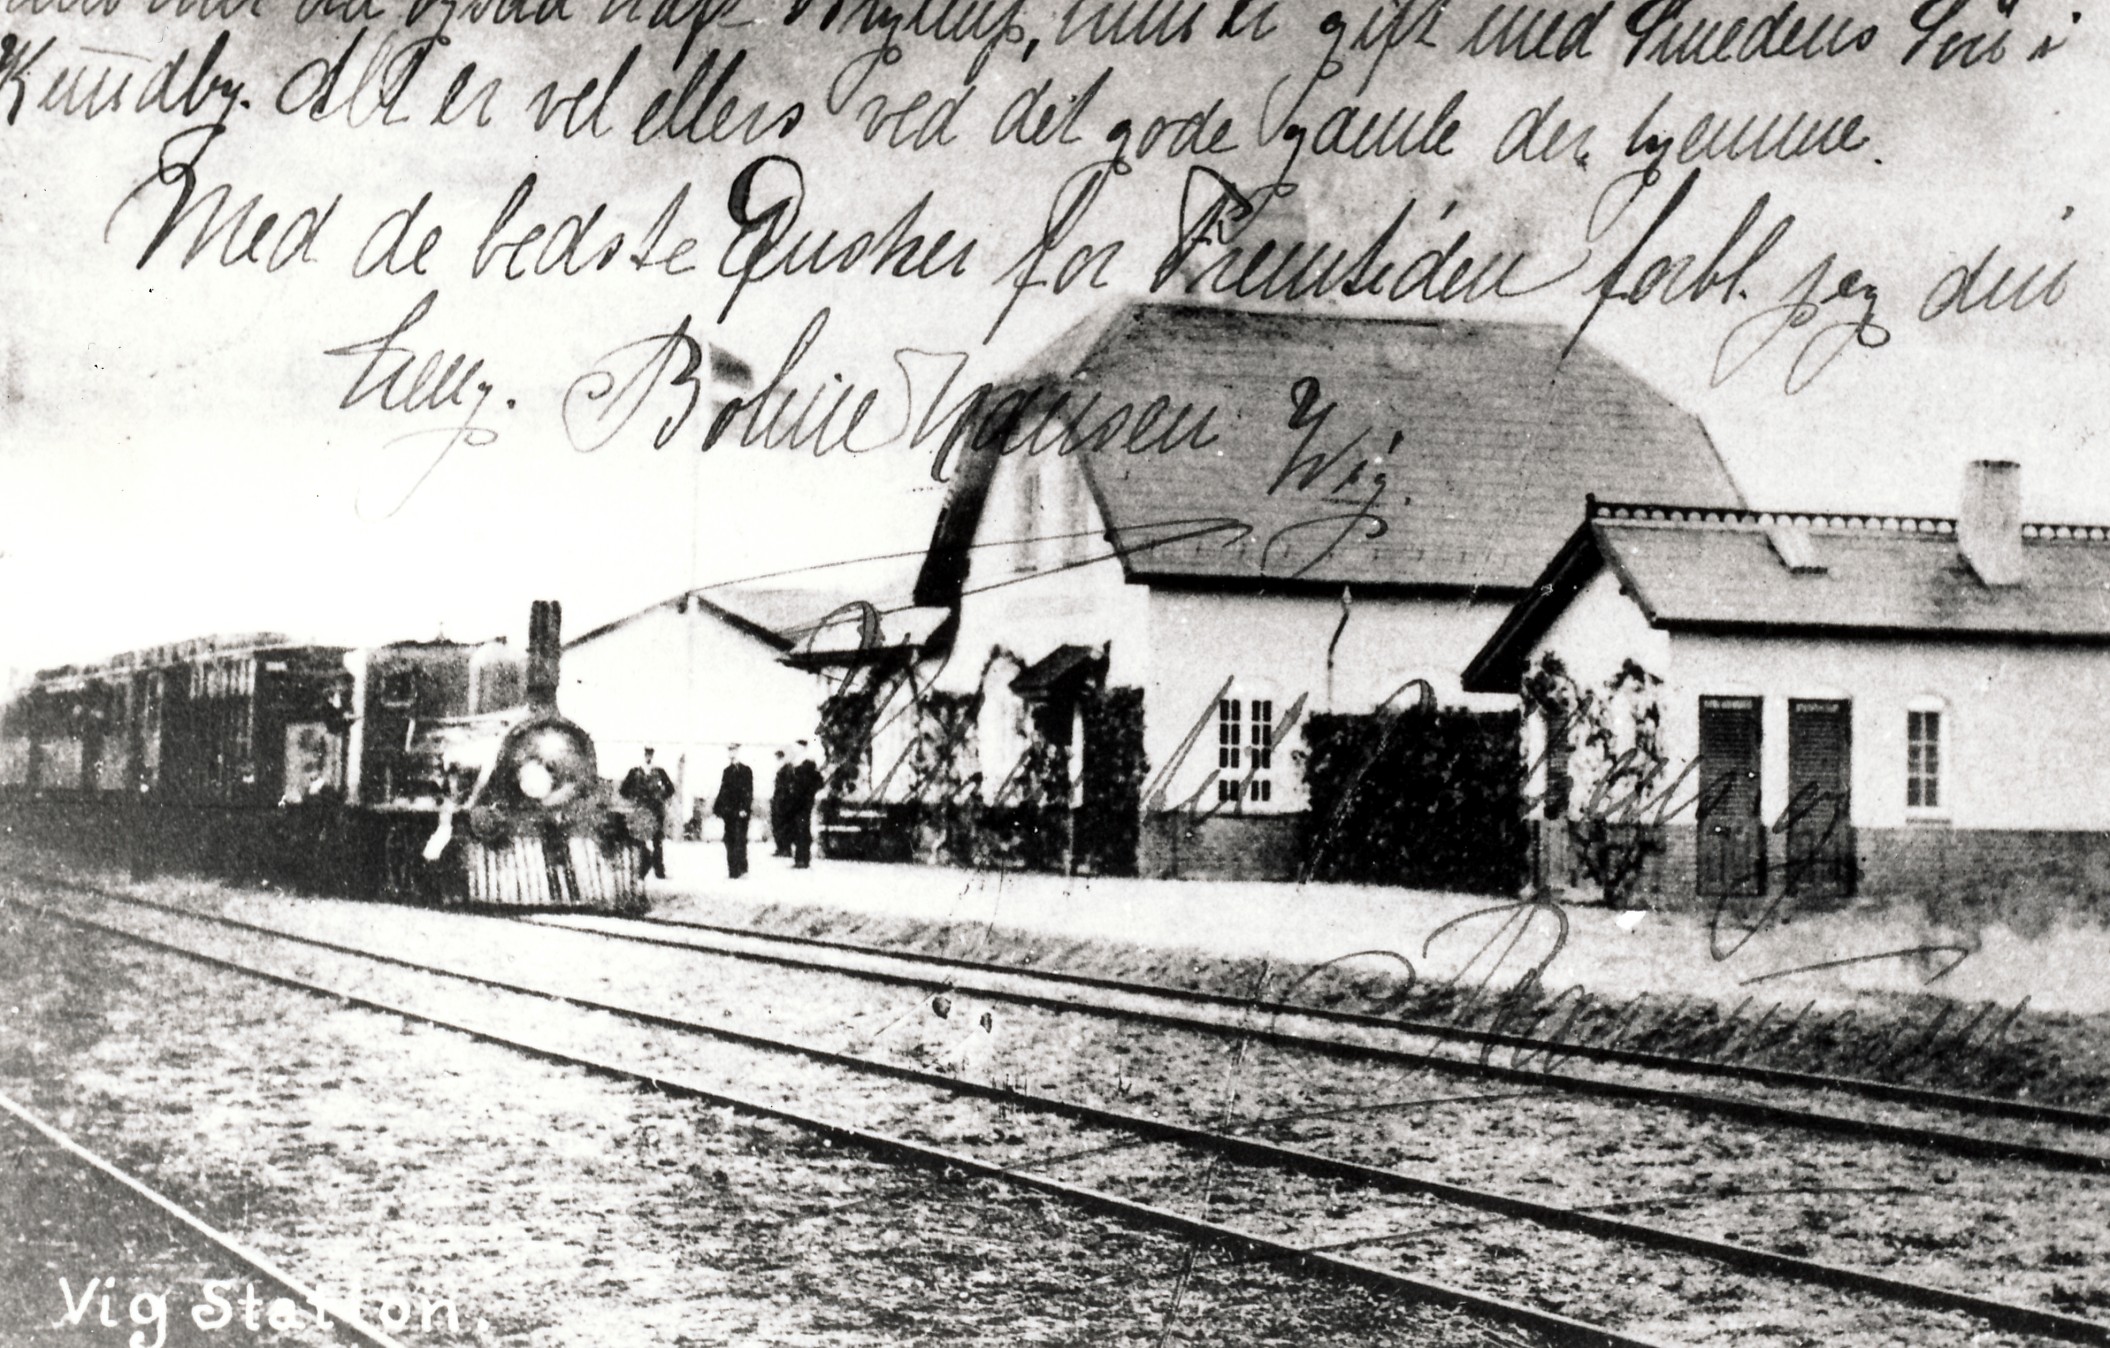 gift med Smedens Søn i
Kundby. Alt er vel ellers ved det gode gamle der hjemme.
Med de bedste Ønsker for Fremtiden forbl. jeg din
heng. Boline Hansen
Vig.
Rasmussen
Vig Station.